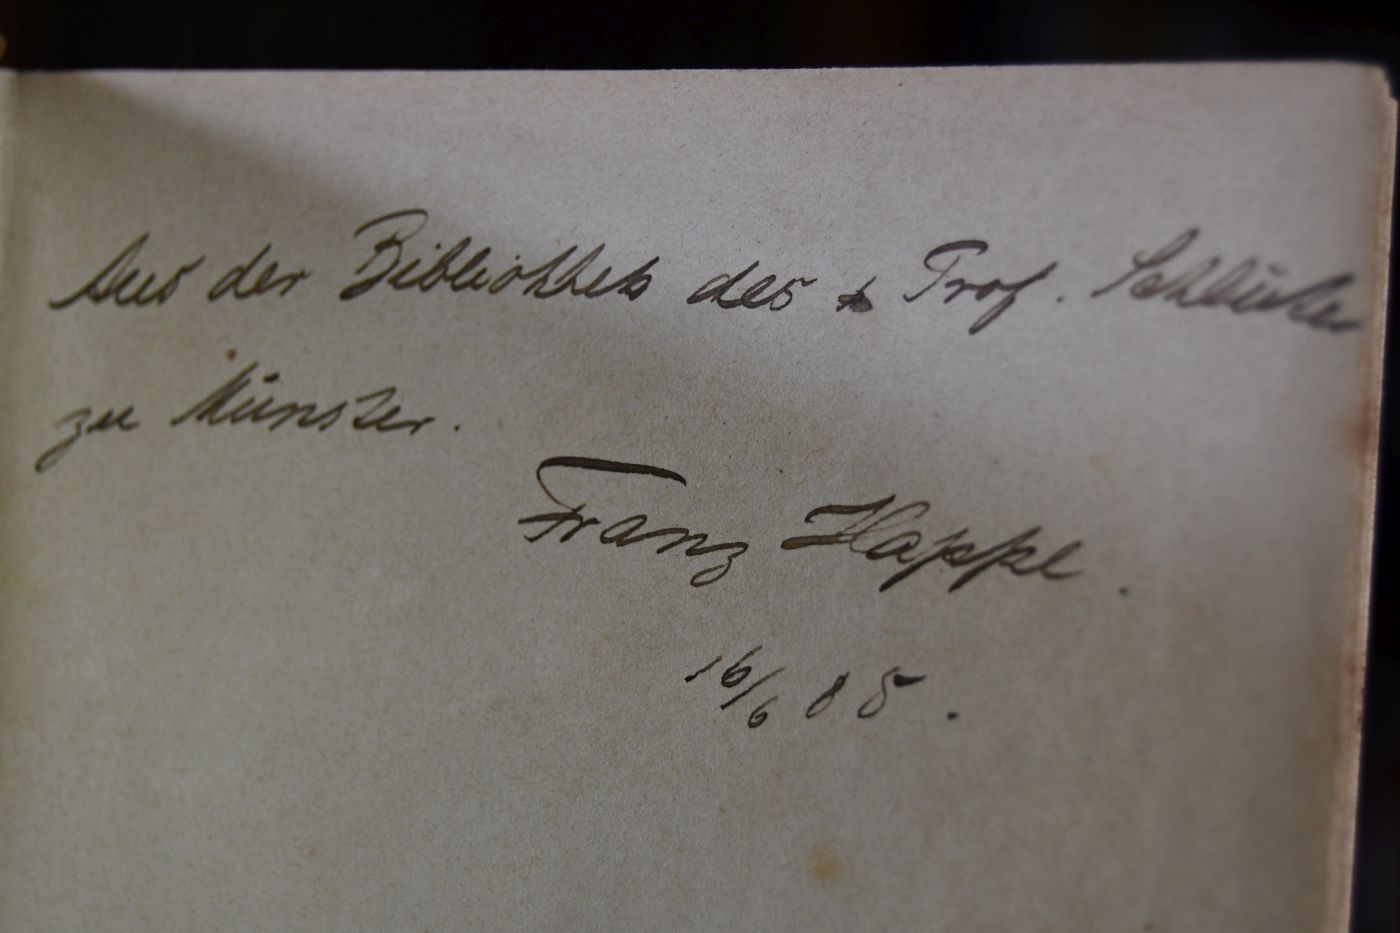 Aus der Bibliothek des † Prof. Schlüter
zu Münster.
Franz Happe.
16/6 85.